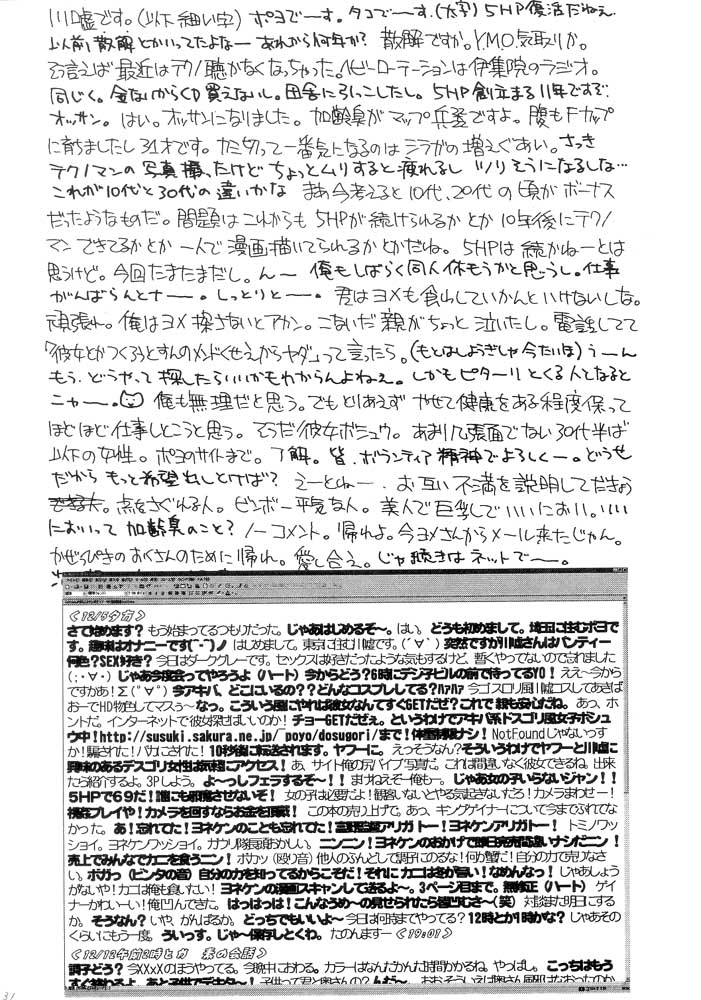 川嘘です。(以下細い字) ポヨでーす。タコでーす。(太字) 5HP復活だねぇ
以前解散とかいってたよなー あれから何年か? 散解ですか。YMO気取りか。
そう言えば最近はテクノ聴かなくなっちゃった。ヘビーローテーションは伊集院のラジオ。
同じく。金ないからCD買えないし。田舎に引っこしたし。5HP創立まる11年ですぞ
オッサン。はい。オッサンになりました。加齢臭がマップ兵器ですよ。腹もFカップ
に育ちましたし31才です。カミ切って一番気になるのはシラガの増えぐあい。さっき
テクノマンの写真撮ったけどちょっとムリすると疲れるし ツリそうになるしな…
これが10代と30代の違いかな まあ今考えると10代、20代の頃がボーナス
だったようなものだ。問題はこれからも5HPが続けられるかとか10年後にテクノ
マンできてるかとか一人で漫画描いてられるかとかだね。5HPは続かねーとは
思うけど。今回たまたまだし。んー 俺もしばらく同人休もうかと思うし。仕事
がんばらんとナー。しっとりとー。君はヨメも食わしていかんといけないしな。
頑張れ。俺はヨメ探さないとアカン。こないだ親がちょっと泣いたし。電話してて
「彼女とかつくろうとすんのメンドくせえからヤダ」って言ったら。(もとはしょうぎしゃ今たいほ) うーん
もう、どうやって探したらいいかもわからんよねぇ。しかもピターリとくる人となると
ニャー。俺も無理だと思う。でもとりあえず やせて健康をある程度保って
ほどほど仕事しとこうと思う。そうだ彼女ボシュウ。あまり几張面でない30代半ば
以下の女性。ポヨのサイトまで。了解。皆、ボランティア精神でよろしくー。どうせ
だからもっと希望出しとけば? えーとねー。お互い不満を説明してだきょう
できる人。点をさぐれる人。ビンボー平気な人。美人で巨乳でいいにおい。いい
においって加齢臭のこと? ノーコメント。帰れよ。今ヨメさんからメール来たじゃん。
かぜっぴきのおくさんのために帰れ。愛し合え。じゃ続きはネットでー。
<12/5夕方>
さて始めます? もう始まってるつもりだった。じゃあはじめるぞ~。はい。どうも初めまして。埼玉に住むポヨで
す。趣味はオナニーです(´ー`)ノ はじめまして。東京に住む川嘘です。(´∀`) 突然ですが川嘘さんはパンティー
何色?SEX好き? 今日はダークグレーです。セックスは好きだったような気もするけど、暫くやってないので忘れました
(;・∀・) じゃあ今度会ってやろうよ(ハート) 今からどう?6時にデジ子ビルの前で待ってるYO! ええ~今から
ですかあ!Σ(゚∀゚) 今アキバ、どこにいるの??どんなコスプレしてる?ハァハァ 今ゴスロリ風川嘘コスしてあきば
おーでHD物色してマスぅ~ なっ。こういう風にやれば彼女なんてすぐGETだぜ?これで親も安心だね。 あっ、ホ
ントだ。インターネットで彼女探せばいいのか! チョーGETだぜぇ。というわけでアキバ系ドスゴリ風女子ボシュ
ウ中!http://susuki.sakura.ne.jp/~poyo/dosugori/まで!体重制限ナシ! NotFoundじゃないっす
か!騙された!バカにされた! 10秒後に転送されます。ヤフーに。 えっそうなん? そういうわけでヤフーと川嘘に
興味のあるデスゴリ女性は気軽にアクセス! あ、サイト俺の尻バイブ写真だ。これは間違いなく彼女できるね。出来
たら紹介するよ。3Pしよう。 よ~っしフェラするぞ~!! まけねえぞー俺も~。 じゃあ女の子いらないジャン!!
5HPで69だ!誰にも邪魔させないぞ! 女の子は必要だよ!観客いないとやる気起きないだろ!カメラまわせー!
視姦プレイや!カメラを回すならお金を頂戴! この本の売り上げで。あっ、キングゲイナーについて今までふれてな
かった。 あ!忘れてた!ヨネケンのことも忘れてた!富野監督アリガトー!ヨネケンアリガトー! トミノワッ
ショイ。ヨネケンワッショイ。カナリ隊長恥ずかしい。 ニンニン!ヨネケンのおかげで即日完売間違いナシだニン!
売上でみんなでカニを食うニン! ボカッ(殴り音)他人のふんどしで調子にのるな!何が蟹だ!自分の力で売りなさ
い。 ボガっ(ビンタの音)自分の力を知ってるからこそだ!それにカニは冬が旨い!なめんなっ! じゃあしょう
がないや!カニは俺も食いたい! ヨネケンの漫画スキャンして送るよ~。3ページ目まで。無修正(ハート) ゲイ
ナーかわいーい!俺凹んできた。 はっはっは!こんなうめ~の見せられたら皆凹むさ~(笑) 対談また明日にする
か。 そうなん? いや、がんばるか。 どっちでもいいよ~ 今日は何時までやってる? 12時とか1時かな? じゃあその
くらいにもう一度。 ういっす。じゃ~保存しとくわ。 たのんますー <19:01>
<12/12午前2時とか 素の会話>
調子どう? 今XXXXのほうやってる。今晩中におわる。カラーはなんだかんだ時間かかるね、やっぱし。 こっちはもう
31